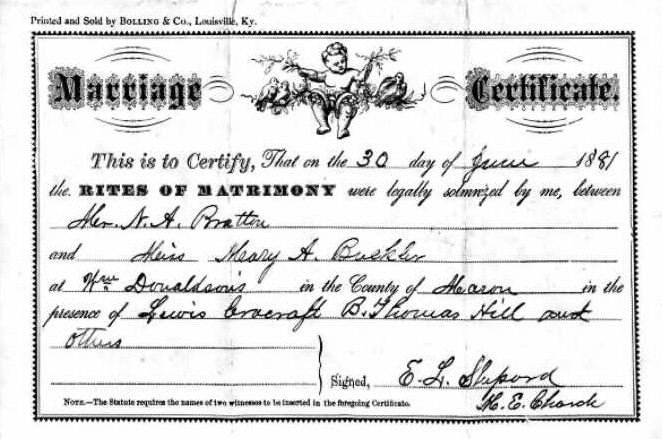 Printed and Sold by BOLLING & Co., Louisville, Ky.
Marriage Certificate.
This is to Certify, That on the 30 day of June 1881
the RITES OF MATRIMONY were legally solmnized by me, between
Mr. N. A. Bratten
and Miss Mary A. Buckler
at Wm Donaldson's in the County of Mason in the
presence of Lewis Craycraft B. Thomas Hill and
others
Signed, E. L. Shepard
NOTE.—The Statute requires the names of two witnesses to be inserted in the foregoing Certificate.
M. E. Church